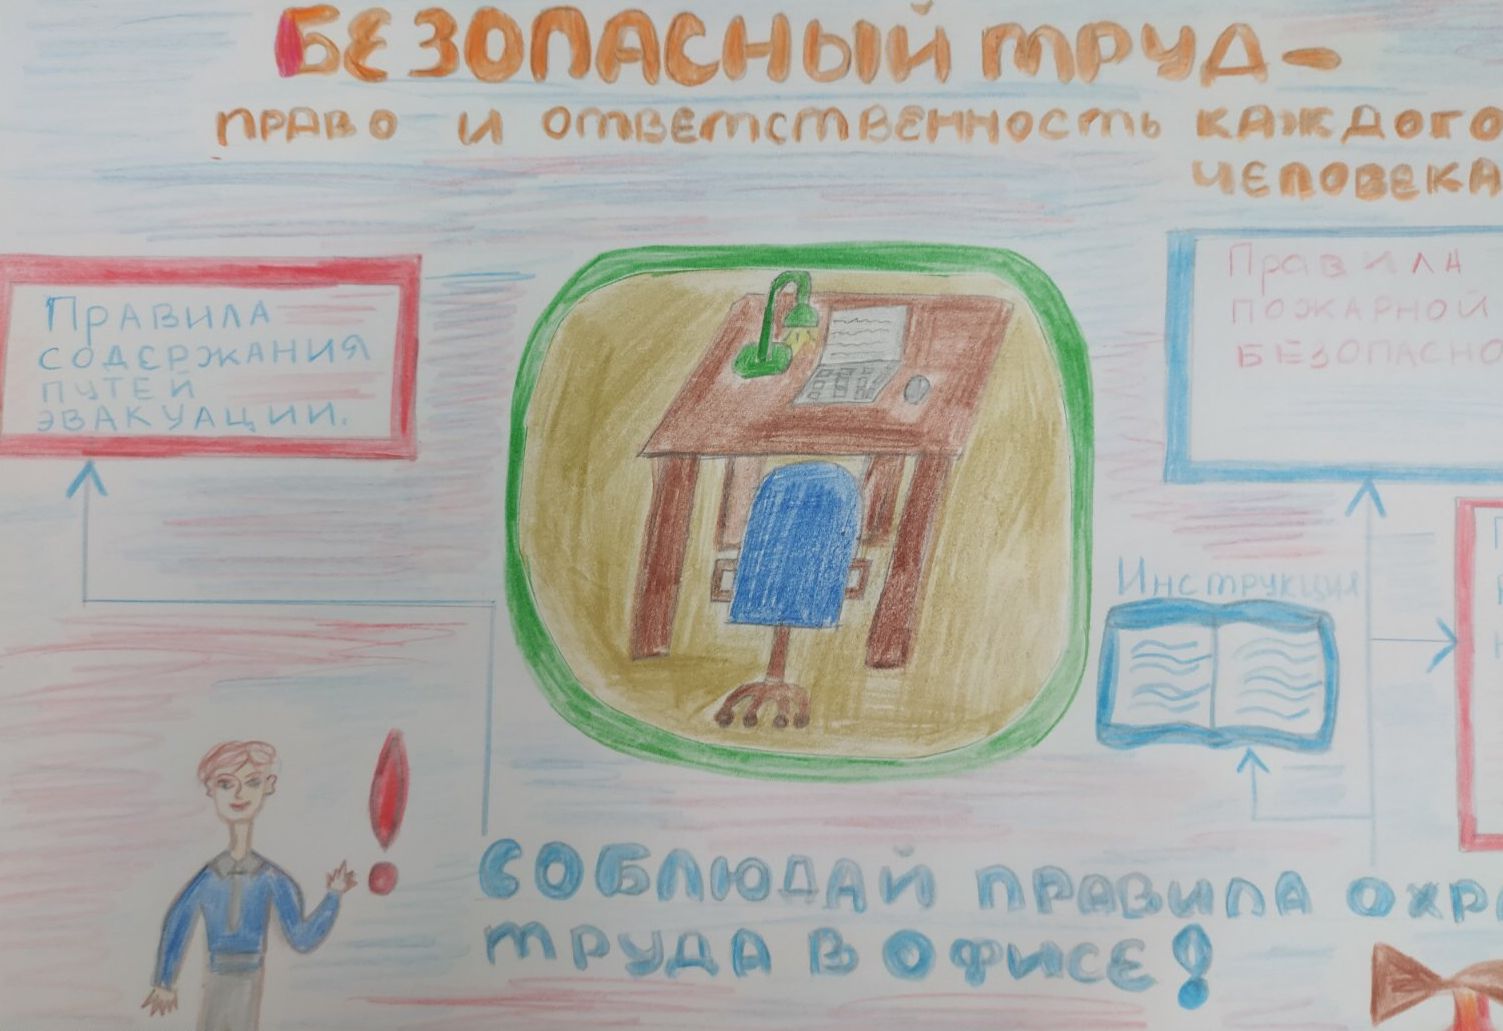 БЕЗОПАСНЫЙ ТРУД-
ПРАВО И ОТВЕТСТВЕННОСТЬ КАЖДОГО
ЧЕЛОВЕКА
ПРАВИЛА
СОДЕРЖАНИЯ
ПУТЕЙ
ЭВАКУАЦИИ.
ПРАВИЛА
ПОЖАРНОЙ
БЕЗОПАСНО
ИНСТРУКЦИЯ
СОБЛЮДАЙ ПРАВИЛА ОХРА
ТРУДА В ОФИСЕ!